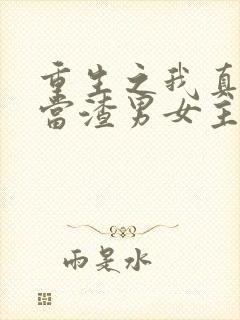 重生之我真
当渣男女主
雨是水